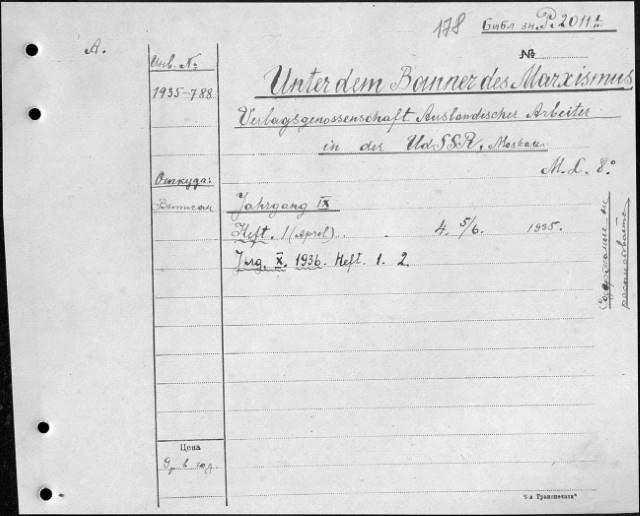 178 Библ. зн. P. 2011
A.
Инв. №
№
1935-788
Unter dem Banner des Marxismus
Verlagsgenossenschaft Ausländischer Arbeiter
in der UdSSR, Moskau.
M. L. 8°
Откуда:
Выписан
Jahrgang IX
Heft. 1 (April) . . 4. 5/6. 1935.
Jhrg. X. 1936. Heft. 1. 2.
Содержание не
Цена
9 р. в год.
"5-я Транспечати"